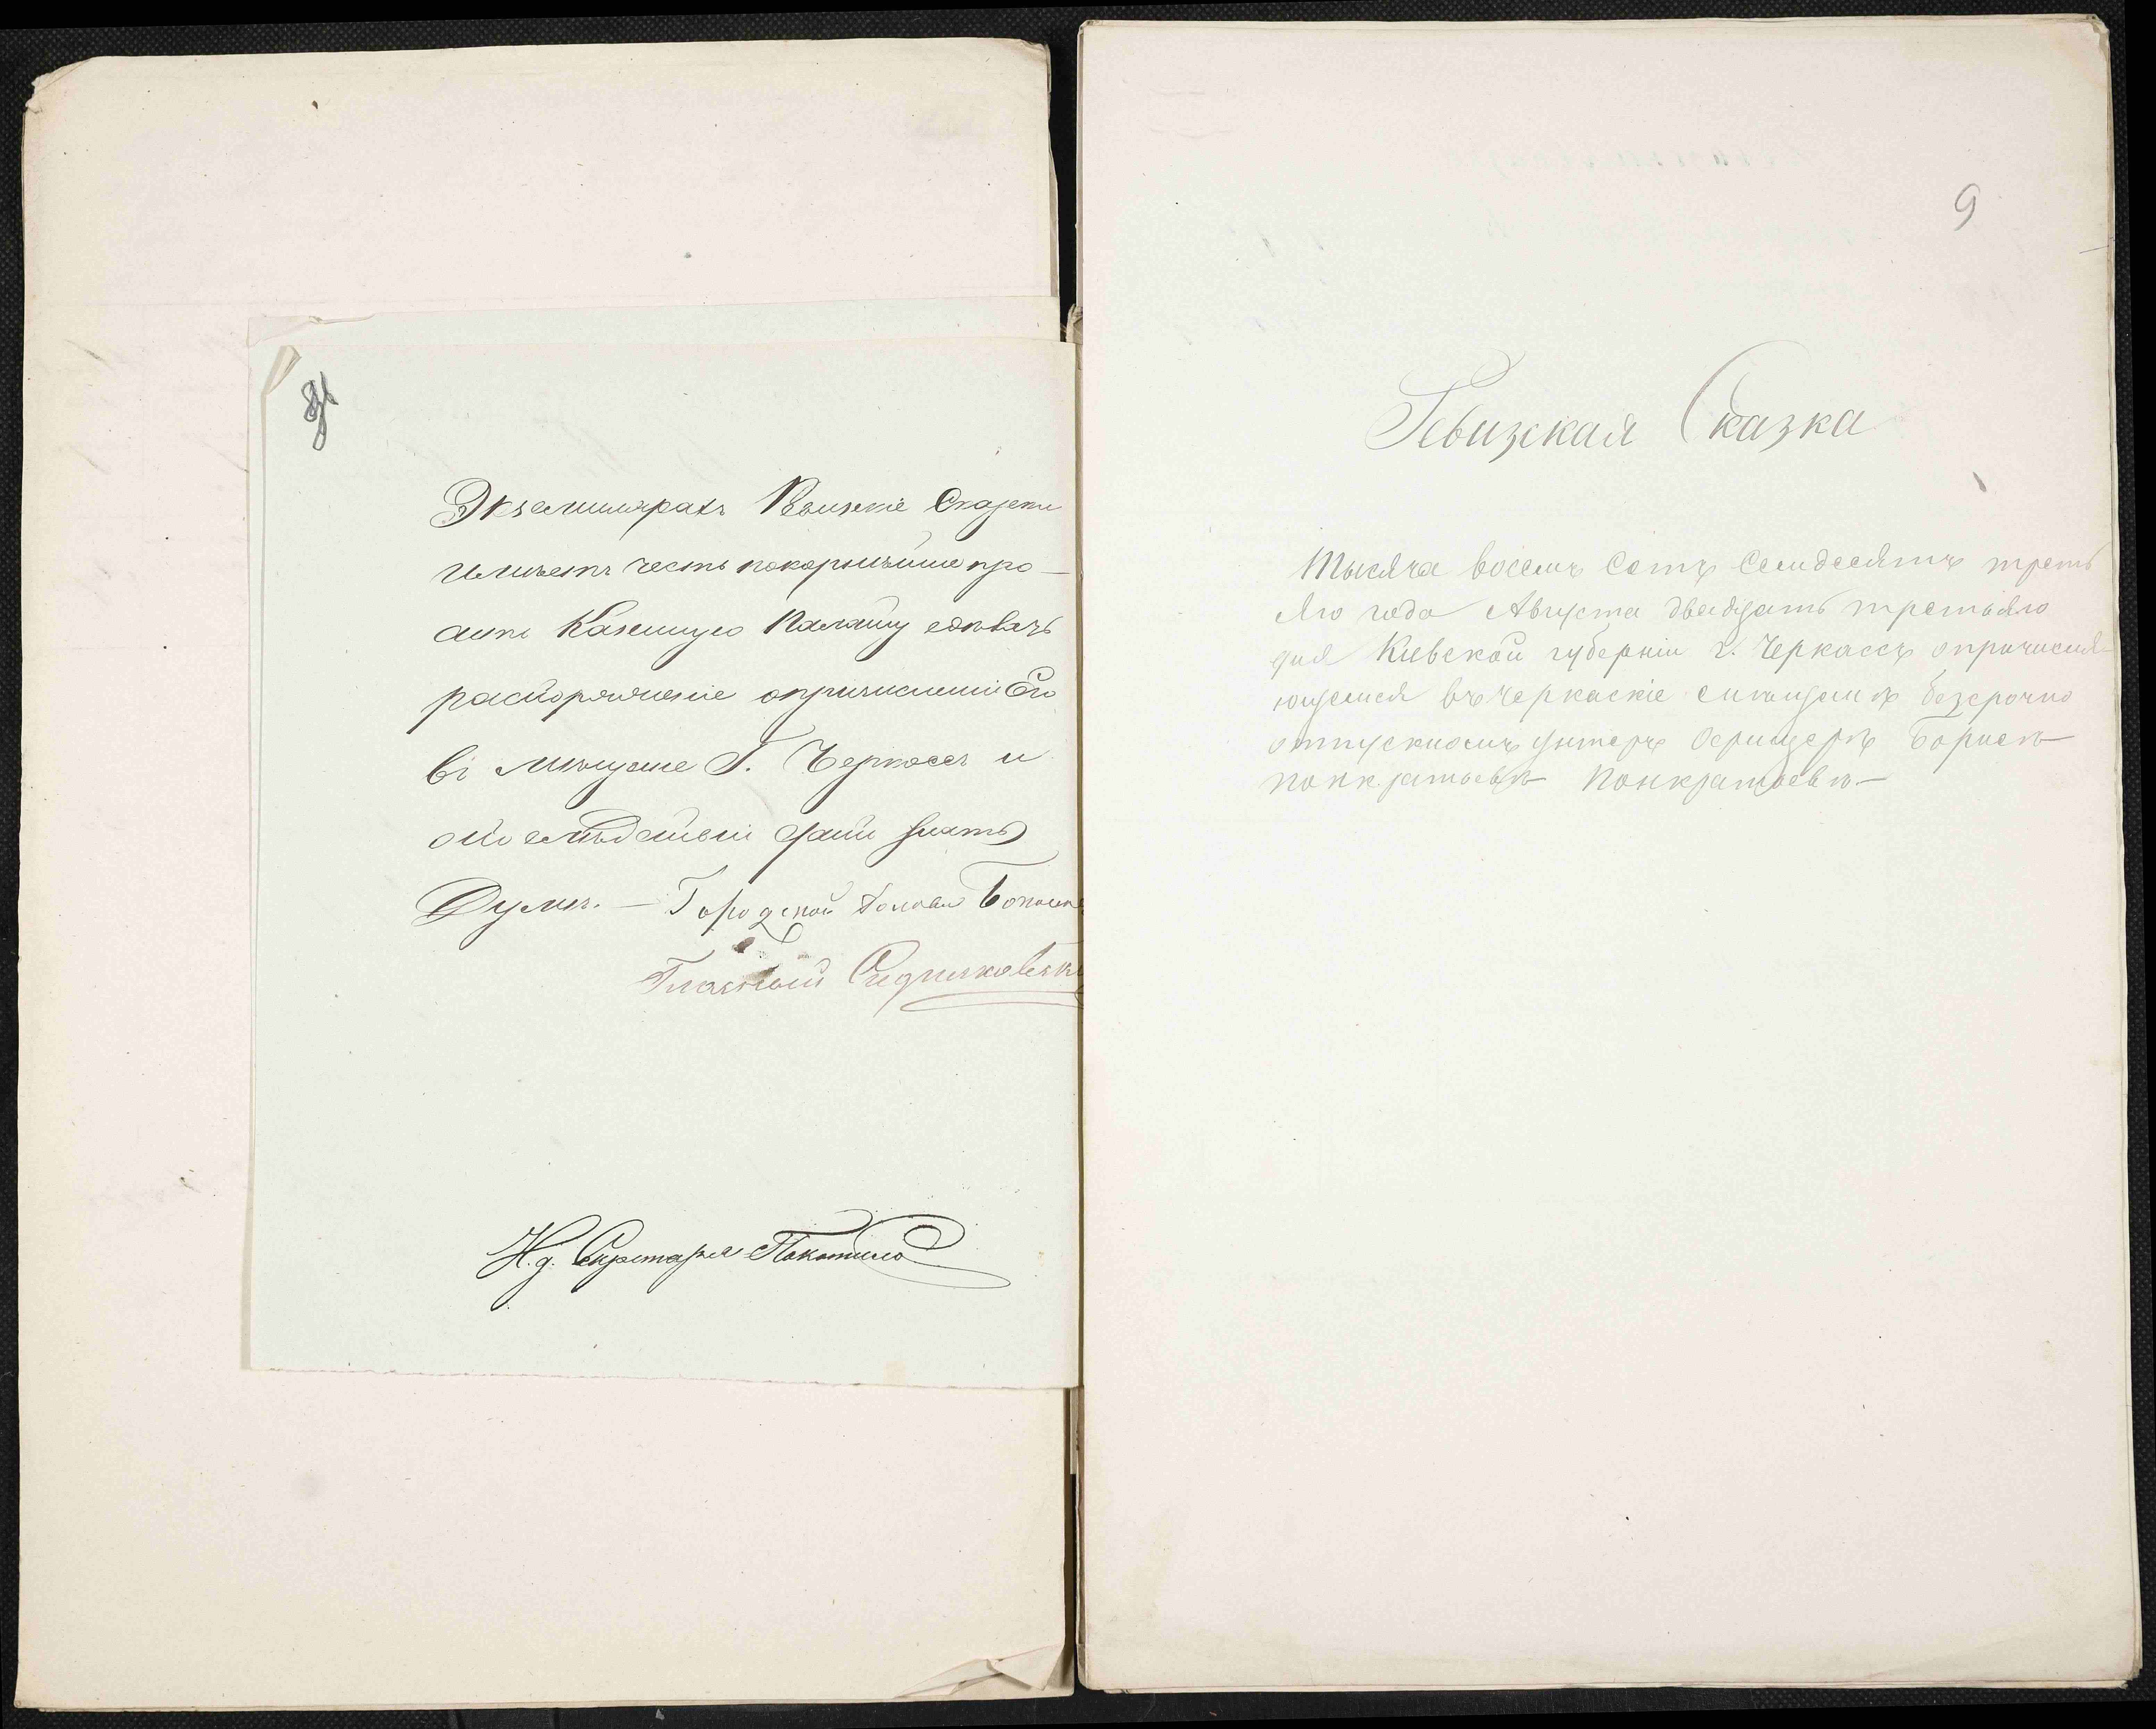 Экземплярахъ Ревизкiе Сказки
имѣетъ честь покорнѣйше про-
сить Казенную Палату сдѣлать
распоряженiе опричисленiи Его
въ мѣщане Г. Черкассъ и
опослѣдствiи дать знать
Думѣ. — Городской Голова
Гласный
И. д. Секретаря Покотило
9
Ревизкая Сказка
Тысяча восемь сотъ семдесятъ треть
яго года Августа двадцать третьяго
дня Кiевской губернiи г. Черкассъ опричисля-
ющемся въ черкаскiе безсрочно
отпускномъ унтеръ Офицерѣ Борисѣ
Понкратьевѣ Понкратьевѣ—